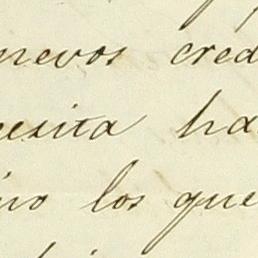 nuevos cred
cesita ha
ino los que